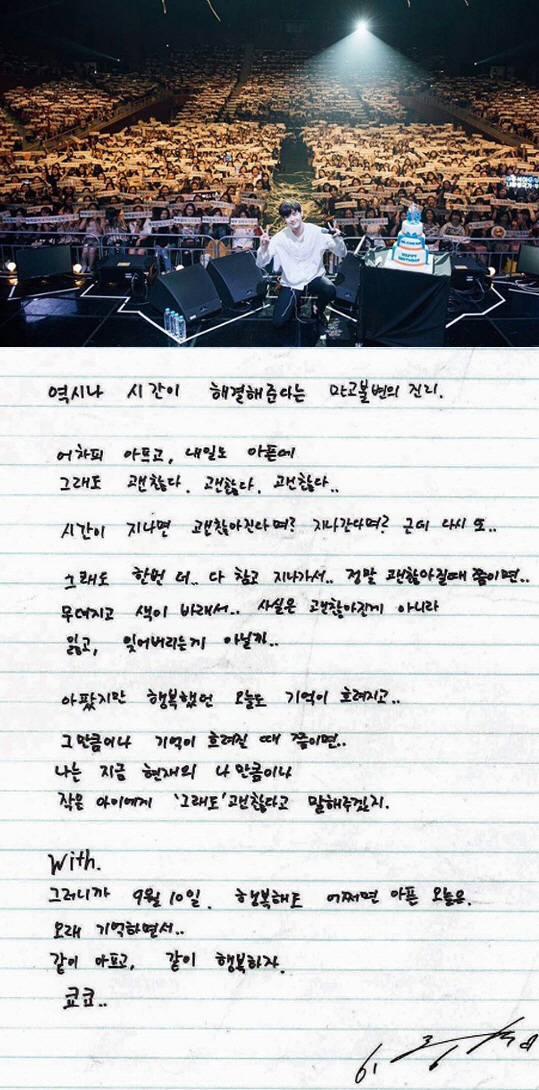 HAPPY
BIRTHDAY
역시나 시간이 해결해준다는 만고불변의 진리.
어차피 아프고, 내일도 아픈데
그래도 괜찮다. 괜찮다. 괜찮다..
시간이 지나면 괜찮아진다며? 지나간다며? 근데 다시 또..
그래도 한번 더.. 다 참고 지나가서.. 정말 괜찮아질때 쯤이면..
무뎌지고 색이 바래서.. 사실은 괜찮아진게 아니라
잃고, 잊어버리는게 아닐까..
아팠지만 행복했던 오늘도 기억이 흐려지고..
그만큼이나 기억이 흐려질 때 쯤이면..
나는 지금 현재의 나만큼이나
작은 아이에게 '그래도' 괜찮다고 말해주겠지.
With.
그러니까 9월 10일. 행복해도 어쩌면 아픈 오늘을.
오래 기억하면서..
같이 아프고, 같이 행복하자.
쿄쿄..